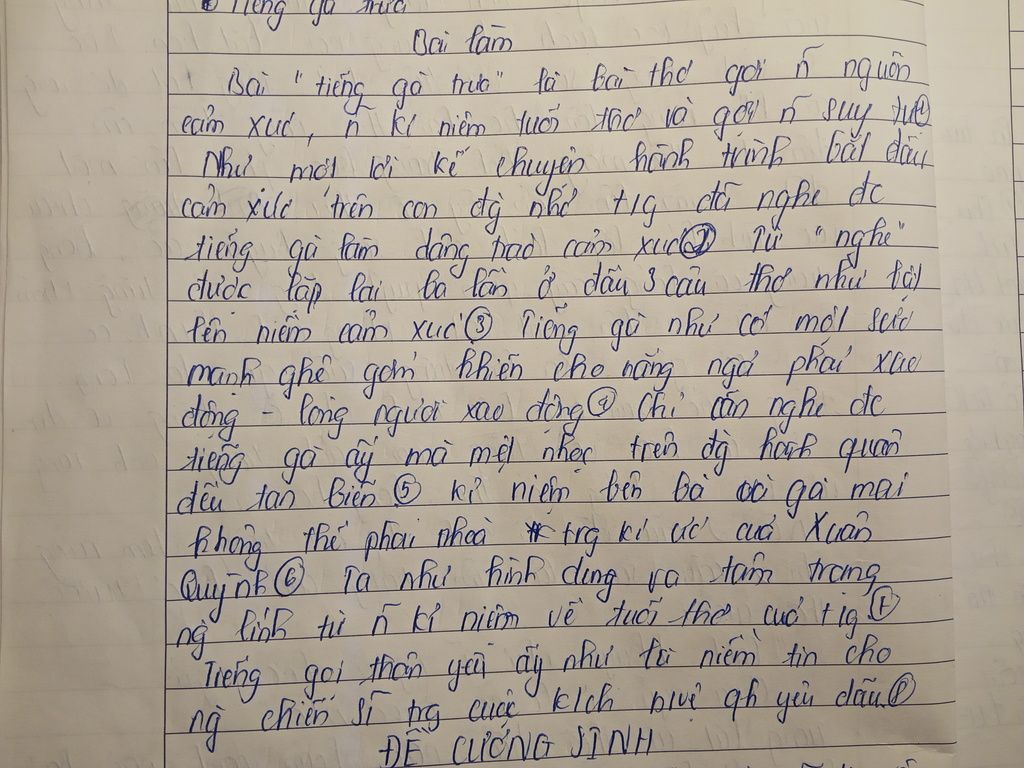 Tiếng gà trưa
Bài làm
Bài "tiếng gà trưa" là bài thơ gợi ñ nguồn
cảm xúc, ñ kỉ niệm tuổi thơ và gợi ñ suy tư①
Như một lời kể chuyện hành trình bắt đầu
cảm xúc trên con đg nhớ t/g đã nghe đc
tiếng gà làm dâng trào cảm xúc② Từ "nghe"
được lặp lại ba lần ở đầu 3 câu thơ như bật
lên niềm cảm xúc③ Tiếng gà như có một sức
mạnh ghê gớm khiến cho nắng ngả phải xao
động - lòng người xao động④ Chỉ cần nghe đc
tiếng gà ấy mà mệt nhọc trên đg hành quân
đều tan biến⑤ kỉ niệm bên bà và gà mái
không thể phai nhoà trg kí ức của Xuân
Quỳnh⑥ Ta như hình dung ra tâm trạng
ng lính từ ñ kỉ niệm về tuổi thơ của t/g⑦
Tiếng gọi thân yêu ấy như là niềm tin cho
ng chiến sĩ trg cuộc k/ch qh yêu dấu⑧
ĐỀ CƯƠNG SINH